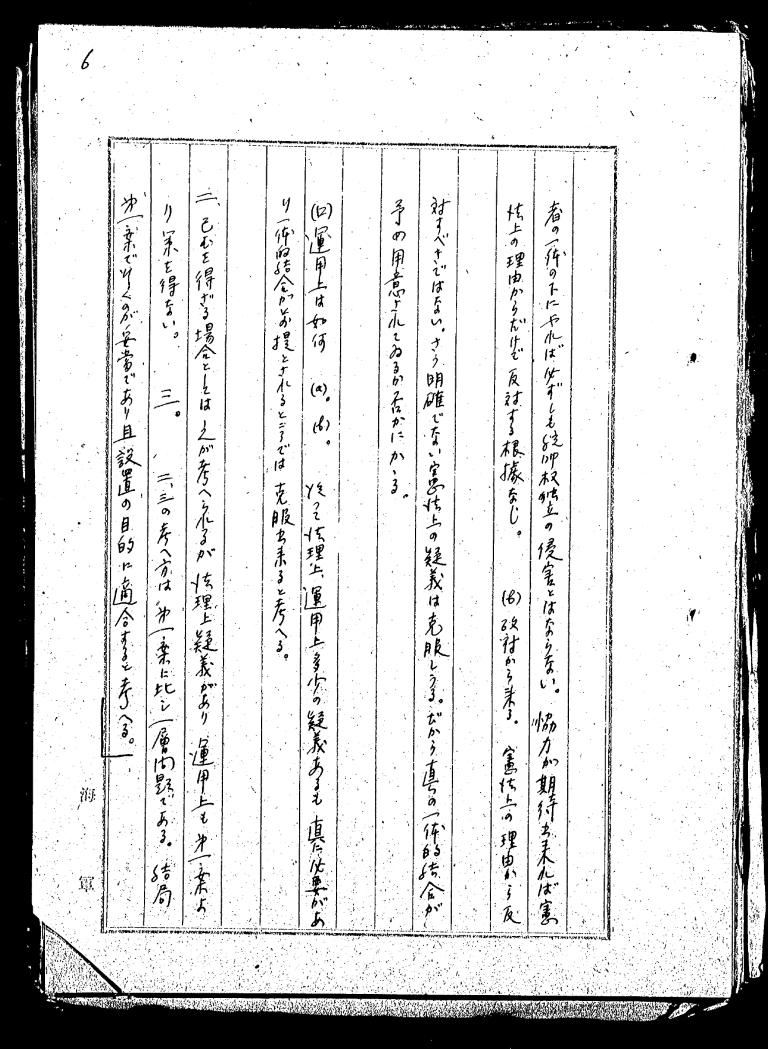 6
者の一体の下にやれば必ずしも統帥权独立の侵害とはならない。協力が期待出来れば憲
法上の理由からだけで反対する根據なし。 (b) 政対から来る。 憲法上の理由から反
対すべきではない。さう明確でない憲法上の疑義は克服しうる。だから真の一体的結合が
予め用意されてゐるか否かにかゝる。
(ロ) 運用上は如何 (a)。 (b)。 従って法理上、運用上多少の疑義あるも真に必要があ
り一体的結合がお提とされるところでは克服出来ると考へる。
二、己むを得ざる場合としては之が考へられるが法理上疑義があり運用上も㐧一案よ
り策を得ない。 三。 二、三の考へ方は㐧一案に比し一層問題である。結局
㐧一案で行くのが妥當であり且設置の目的に適合すると考へる。
海軍